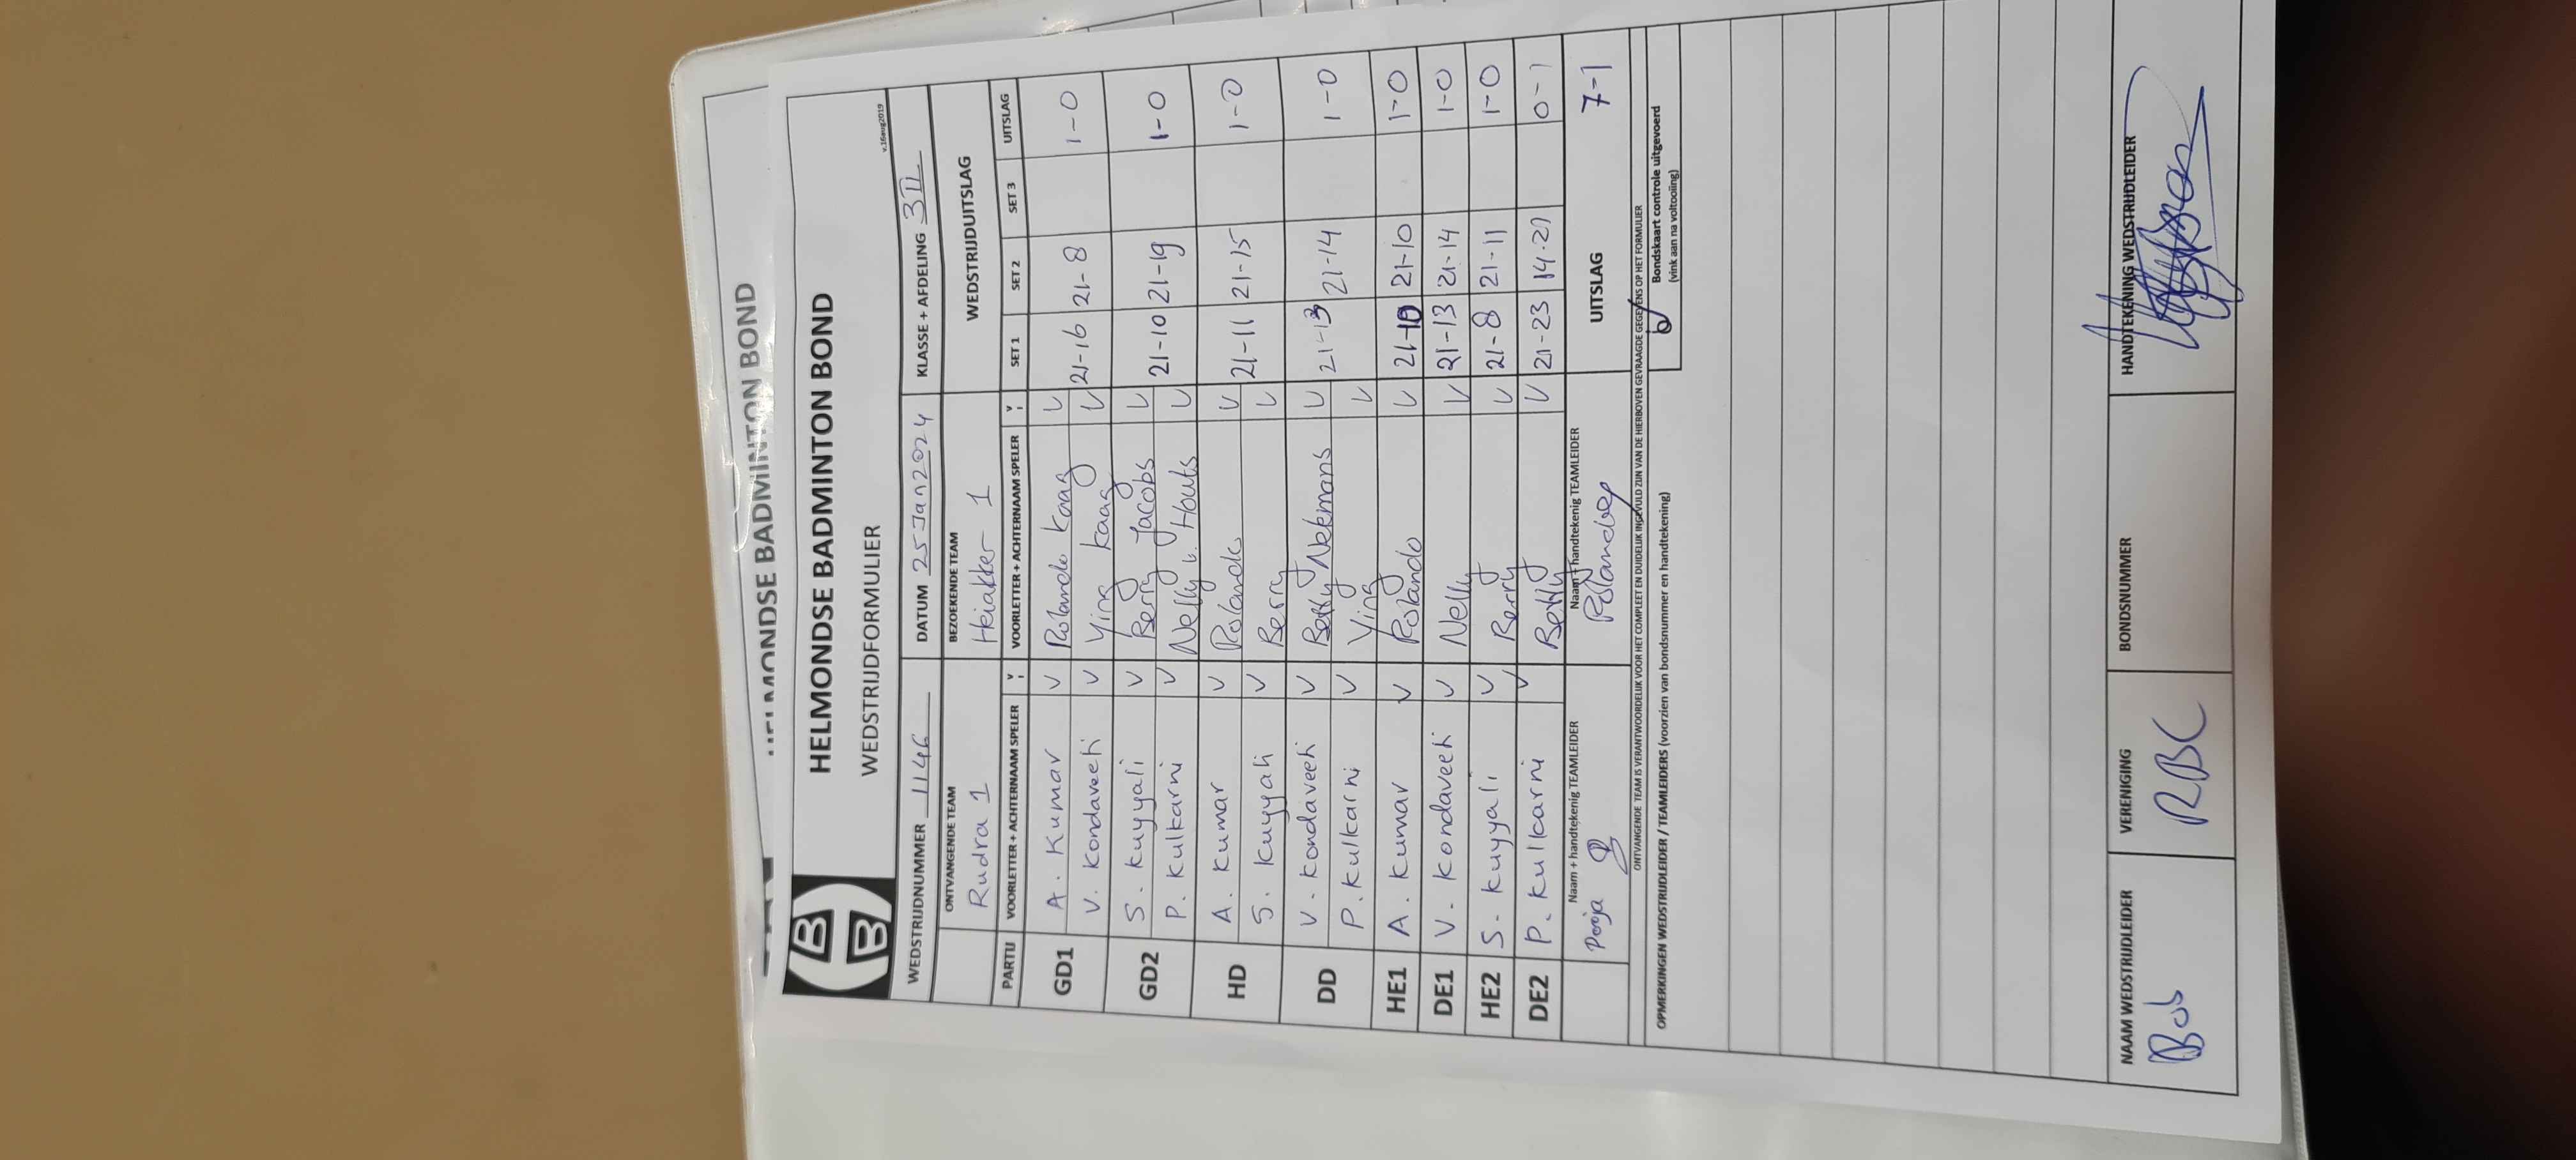 HELMONDSE BADMINTON BOND
HELMONDSE BADMINTON BOND
WEDSTRIJDFORMULIER
v.16aug2019
WEDSTRIJDNUMMER 1146 DATUM 25 Jan 2024 KLASSE + AFDELING 3II
ONTVANGENDE TEAM BEZOEKENDE TEAM WEDSTRIJDUITSLAG
Rudra 1 Heiakker 1
PARTIJ VOORLETTER + ACHTERNAAM SPELER V VOORLETTER + ACHTERNAAM SPELER V SET 1 SET 2 SET 3 UITSLAG
GD1 A. Kumar V Rolando Kaag V 21-16 21-8 1-0
V. Kondaveeti V Ying Kaag V
GD2 S. Kuyyali V Berry Jacobs V 21-10 21-19 1-0
P. Kulkarni V Nelly v. Houts V
HD A. Kumar V Rolando V 21-11 21-15 1-0
S. Kuyyali V Berry V
DD V. Kondaveeti V Betty Nekmans V 21-13 21-14 1-0
P. Kulkarni V Ying V
HE1 A. Kumar V Rolando V 21-10 21-10 1-0
DE1 V. Kondaveeti V Nelly V 21-13 21-14 1-0
HE2 S. Kuyyali V Berry V 21-8 21-11 1-0
DE2 P. Kulkarni V Betty V 21-23 14-21 0-1
Naam + handtekenig TEAMLEIDER Naam + handtekenig TEAMLEIDER UITSLAG 7-1
Pooja
ONTVANGENDE TEAM IS VERANTWOORDELIJK VOOR HET COMPLEET EN DUIDELIJK INGEVULD ZIJN VAN DE HIERBOVEN GEVRAAGDE GEGEVENS OP HET FORMULIER
OPMERKINGEN WEDSTRIJDLEIDER / TEAMLEIDERS (voorzien van bondsnummer en handtekening)
Bondskaart controle uitgevoerd
(vink aan na voltooiing)
NAAM WEDSTRIJDLEIDER VERENIGING BONDSNUMMER HANDTEKENING WEDSTRIJDLEIDER
Bob RBC